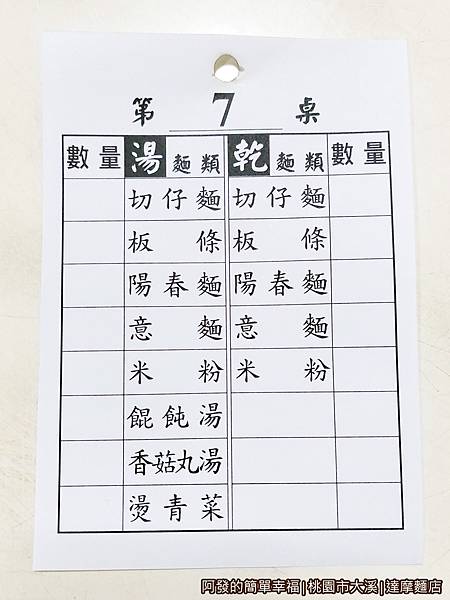 第 7 桌
數量 湯麵類 乾麵類 數量
切仔麵 切仔麵
板條 板條
陽春麵 陽春麵
意麵 意麵
米粉 米粉
餛飩湯
香菇丸湯
燙青菜
阿發的簡單幸福|桃園市大溪|達摩麵店